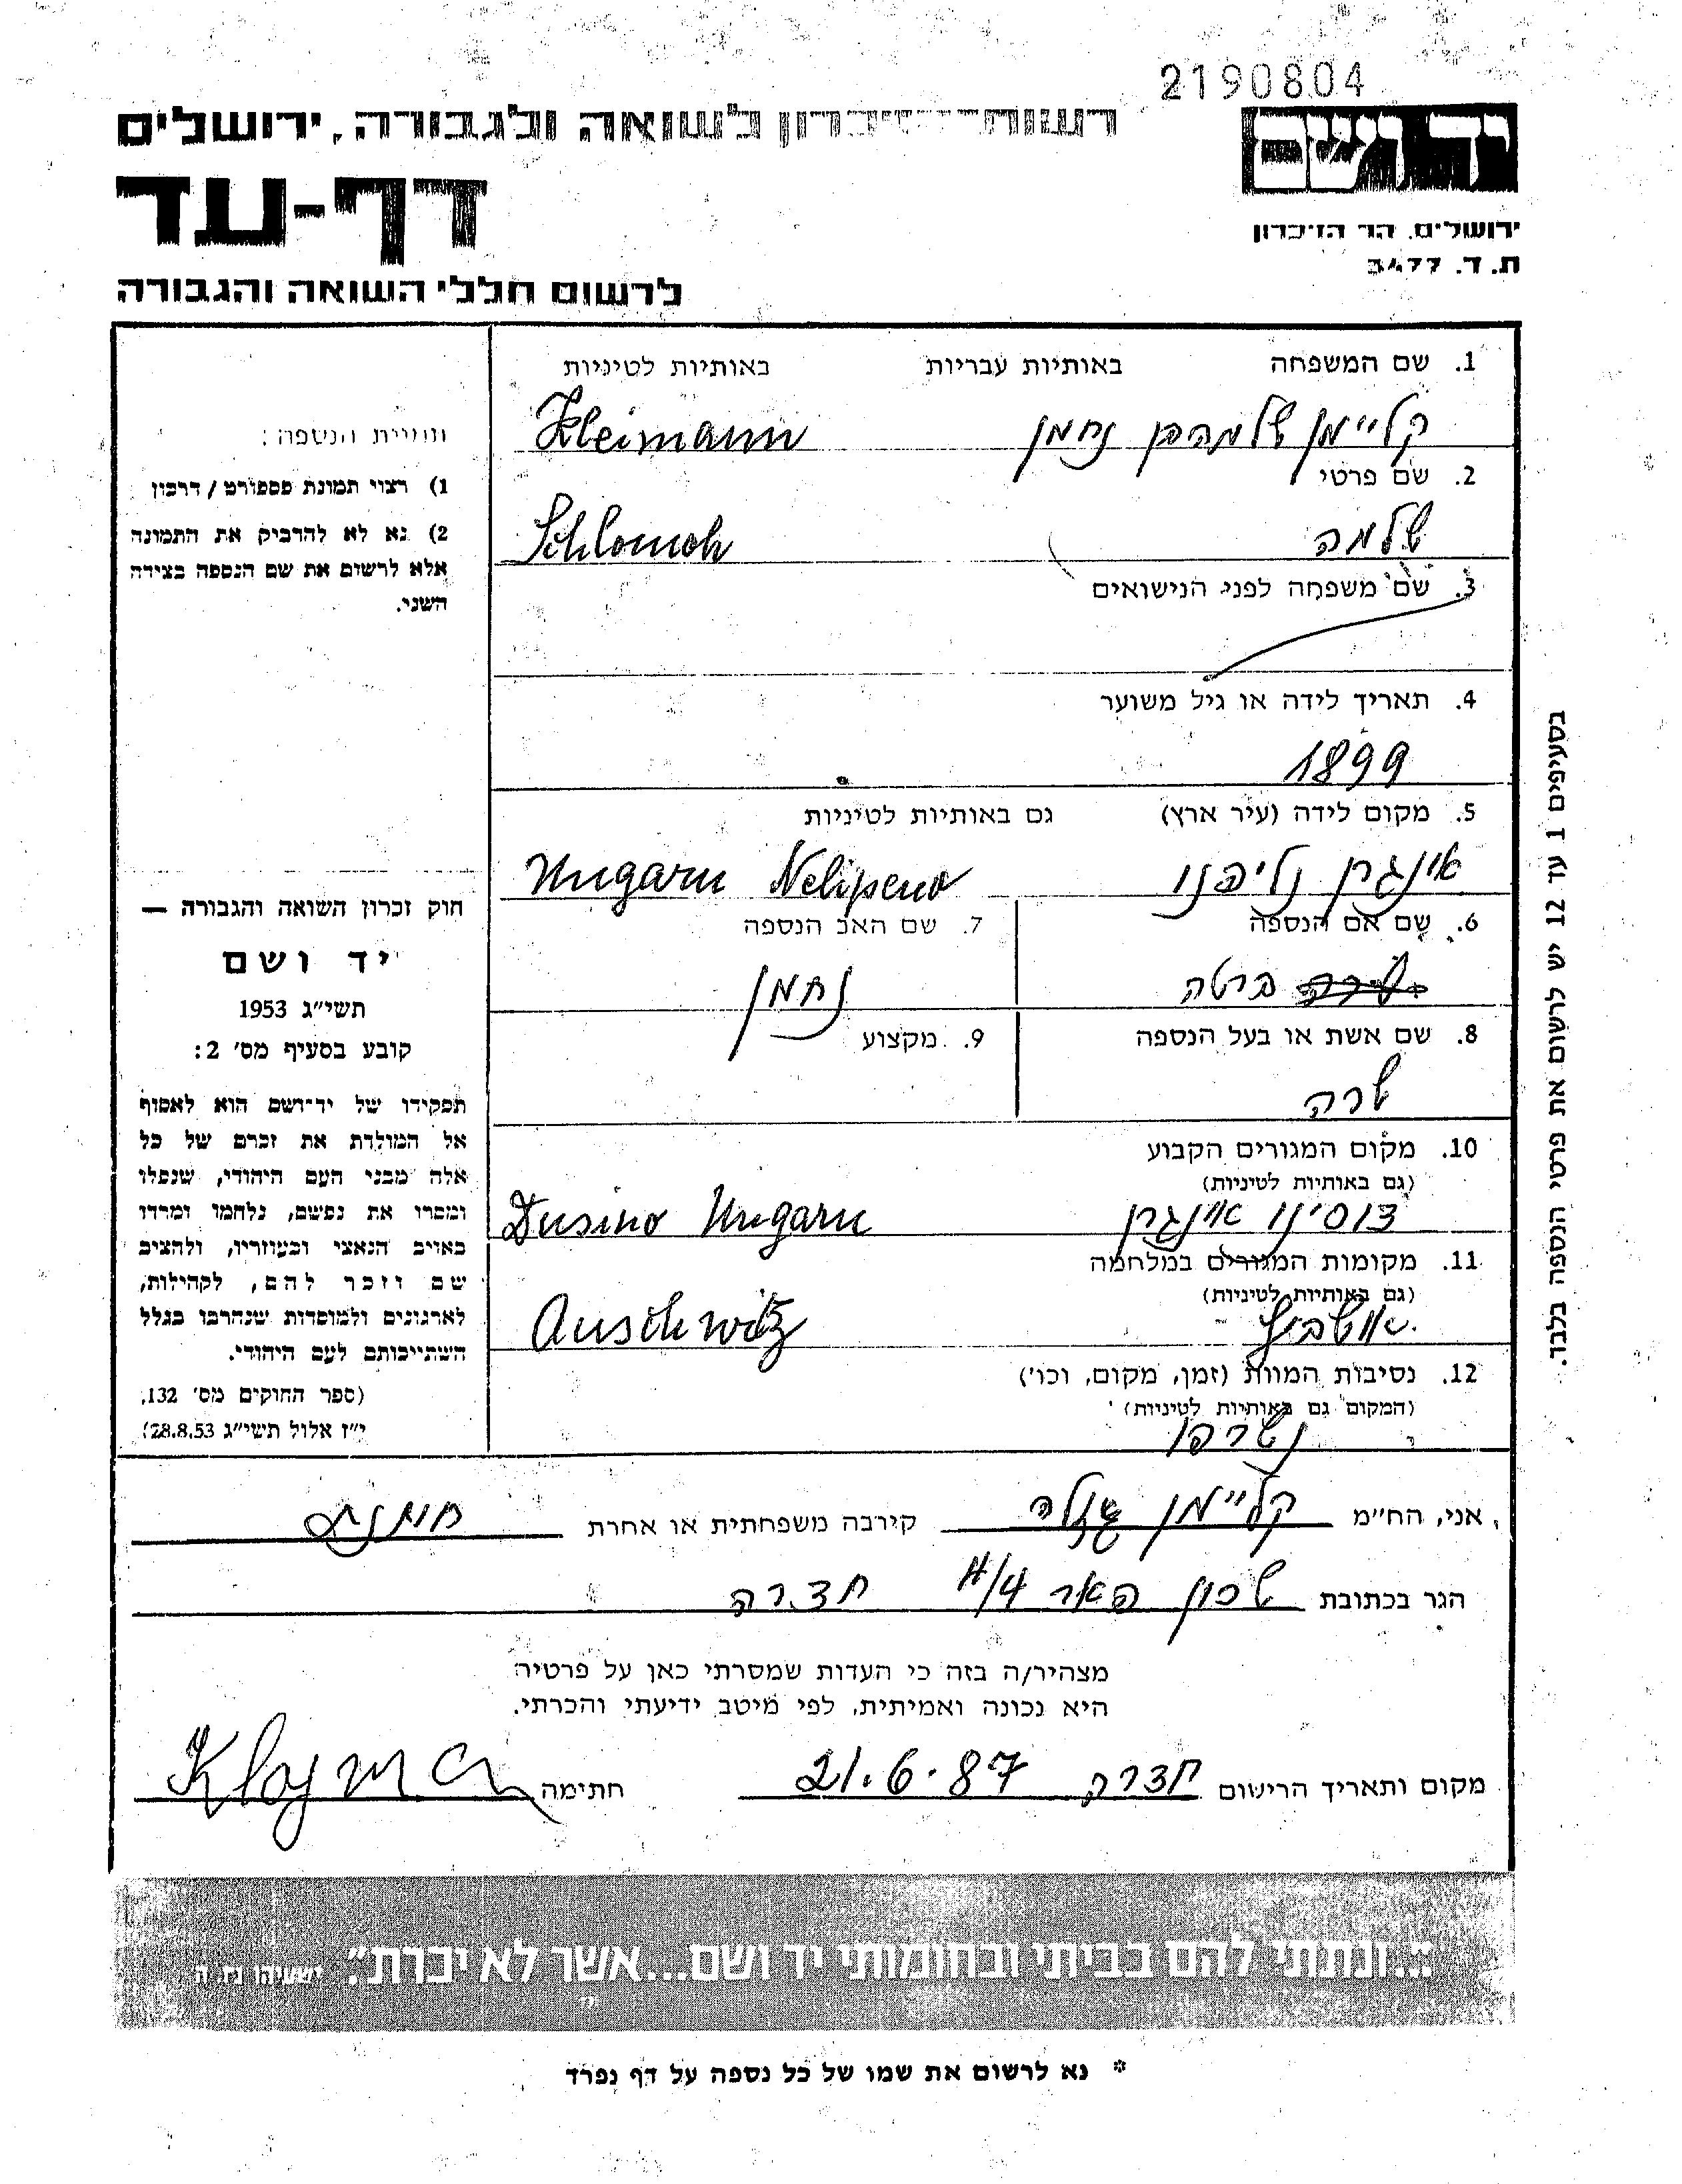 2190804
רשות הזיכרון לשואה ולגבורה, ירושלים
יד ושם
דף-עד
ירושלים, הר הזיכרון
ת. ד. 3477
לרשום חללי השואה והגבורה
1. שם המשפחה באותיות עבריות באותיות לטיניות
קליימן שלמה בן נחמן Kleimann
2. שם פרטי
שלמה Schlomoh
3. שם משפחה לפני הנישואים
4. תאריך לידה או גיל משוער
1899
5. מקום לידה (עיר ארץ) גם באותיות לטיניות
אונגרן נליפנו Ungarn Nelipeno
6. שם אם הנספה 7. שם האב הנספה
ברטה נחמן
8. שם אשת או בעל הנספה 9. מקצוע
שרה
10. מקום המגורים הקבוע
(גם באותיות לטיניות)
דוסינו אונגרן Dusino Ungarn
11. מקומות המגורים במלחמה
(גם באותיות לטיניות)
אושביץ Auschwitz
12. נסיבות המוות (זמן, מקום, וכו')
(המקום גם באותיות לטיניות)
נשרפו
תמונת הנספה:
1) רצוי תמונת פספורט / דרכון
2) נא לא להדביק את התמונה
אלא לרשום את שם הנספה בצידה
השני.
חוק זכרון השואה והגבורה —
יד ושם
תשי״ג 1953
קובע בסעיף מס׳ 2:
תפקידו של יד־ושם הוא לאסוף
אל המולדת את זכרם של כל
אלה מבני העם היהודי, שנפלו
ומסרו את נפשם, נלחמו ומרדו
באויב הנאצי ובעוזריו, ולהציב
שם וזכר להם, לקהילות,
לארגונים ולמוסדות שנחרבו בגלל
השתייכותם לעם היהודי.
(ספר החוקים מס׳ 132,
י״ז אלול תשי״ג 28.8.53)
בסעיפים 1 עד 12 יש לרשום את פרטי הנספה בלבד.
אני, הח״מ קליימן קירבה משפחתית או אחרת חותנת
הגר בכתובת שכון פאר 4/א חדרה
מצהיר/ה בזה כי העדות שמסרתי כאן על פרטיה
היא נכונה ואמיתית, לפי מיטב ידיעתי והכרתי.
מקום ותאריך הרישום חדרה 21.6.87 חתימה Klajman
"...ונתתי להם בביתי ובחומותי יד ושם...אשר לא יכרת". ישעיהו נו, ה
* נא לרשום את שמו של כל נספה על דף נפרד